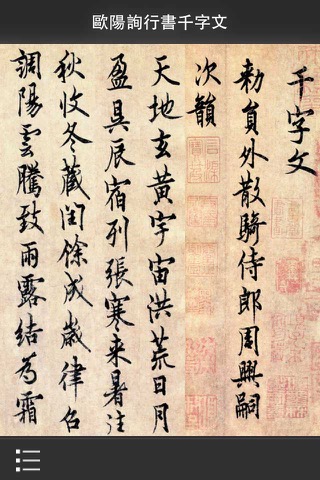 歐陽詢行書千字文
千字文
勅員外散騎侍郎周興嗣
次韻
天地玄黃宇宙洪荒日月
盈昃辰宿列張寒来暑往
秋收冬藏閏餘成歲律呂
調陽雲騰致雨露結為霜